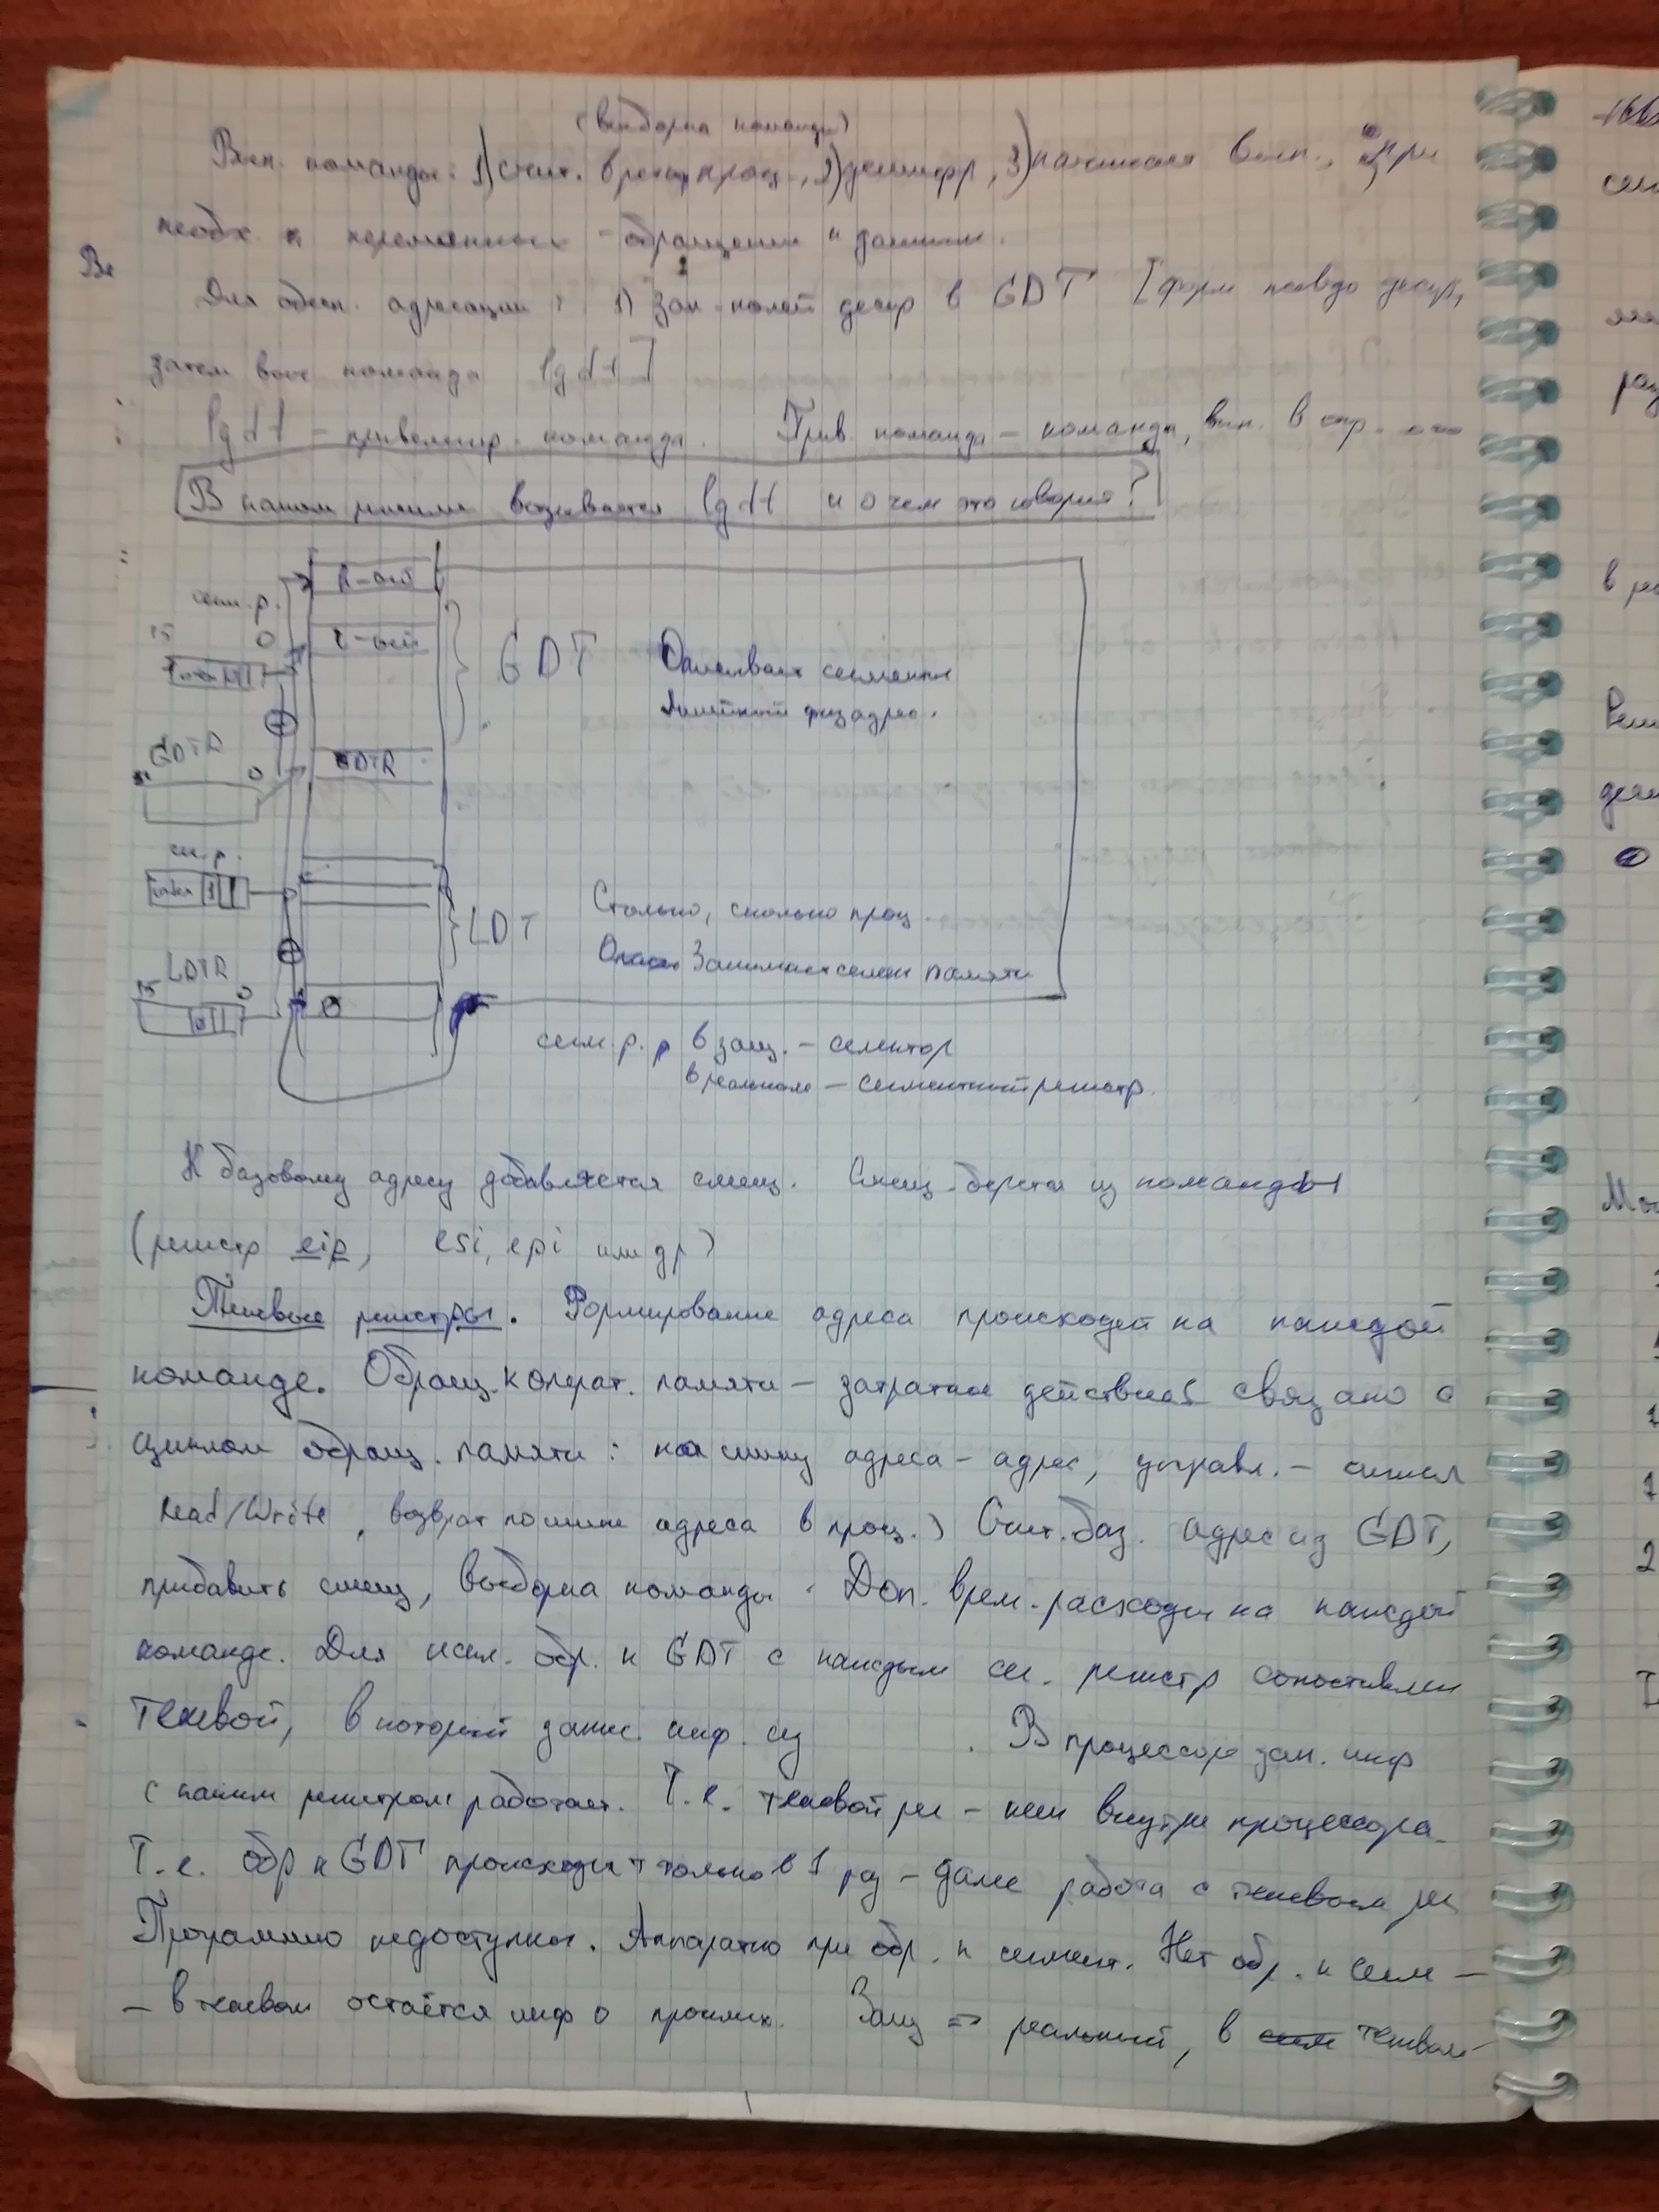 (выборка команды)
Вып. команды: 1) счит. в регистр проц., 2) дешифр, 3) начинает вып., при
необх. к переменным - обращение к данным.
Для обесп. адресации: 1) зап. полей дескр в GDT [форм псевдо дескр,
затем вып команда lgdt]
lgdt - привелегир. команда. Прив. команда - команда, вып. в
В каком режиме вызывается lgdt и о чем это говорит?
k-ый
сегм. р.
15 0
i-ый
GDT Описывает сегменты
index
линейный физ адрес.
GDTR
0
GDTR
сег. р.
index 1
Столько, сколько проц.
LDT
LDTR
Описы Занимает сегмент памяти
15 0
0
сегм. р. в защ. - селектор
в реальном - сегментный регистр.
К базовому адресу добавляется смещ. Смещ. берется из команды
(регистр eip, esi, epi или др)
Теневые регистры. Формирование адреса происходит на каждой
команде. Обращ. к операт. памяти - затратное действие связано с
циклом обращ. памяти: на шину адреса - адрес, управл. - сигнал
Read/Write, возврат по шине адреса в проц.) Счит. баз. адрес из GDT,
прибавить смещ, выборка команды. Доп. врем. расходы на каждой
команде. Для искл. обр. к GDT с каждым сег. регистр сопоставлен
теневой, в который запис. инф. из . В процессоре зап. инф
с каким регистром работает. Т.е. теневой рег - кеш внутри процессора.
Т.е. обр к GDT происходит только в 1 раз - далее работа с теневым рег
Программно недоступны. Аппаратно при обр. к сегмент. Нет обр. к сегм -
- в теневом остаётся инф о прошлых. Защ => реальный, в теневом